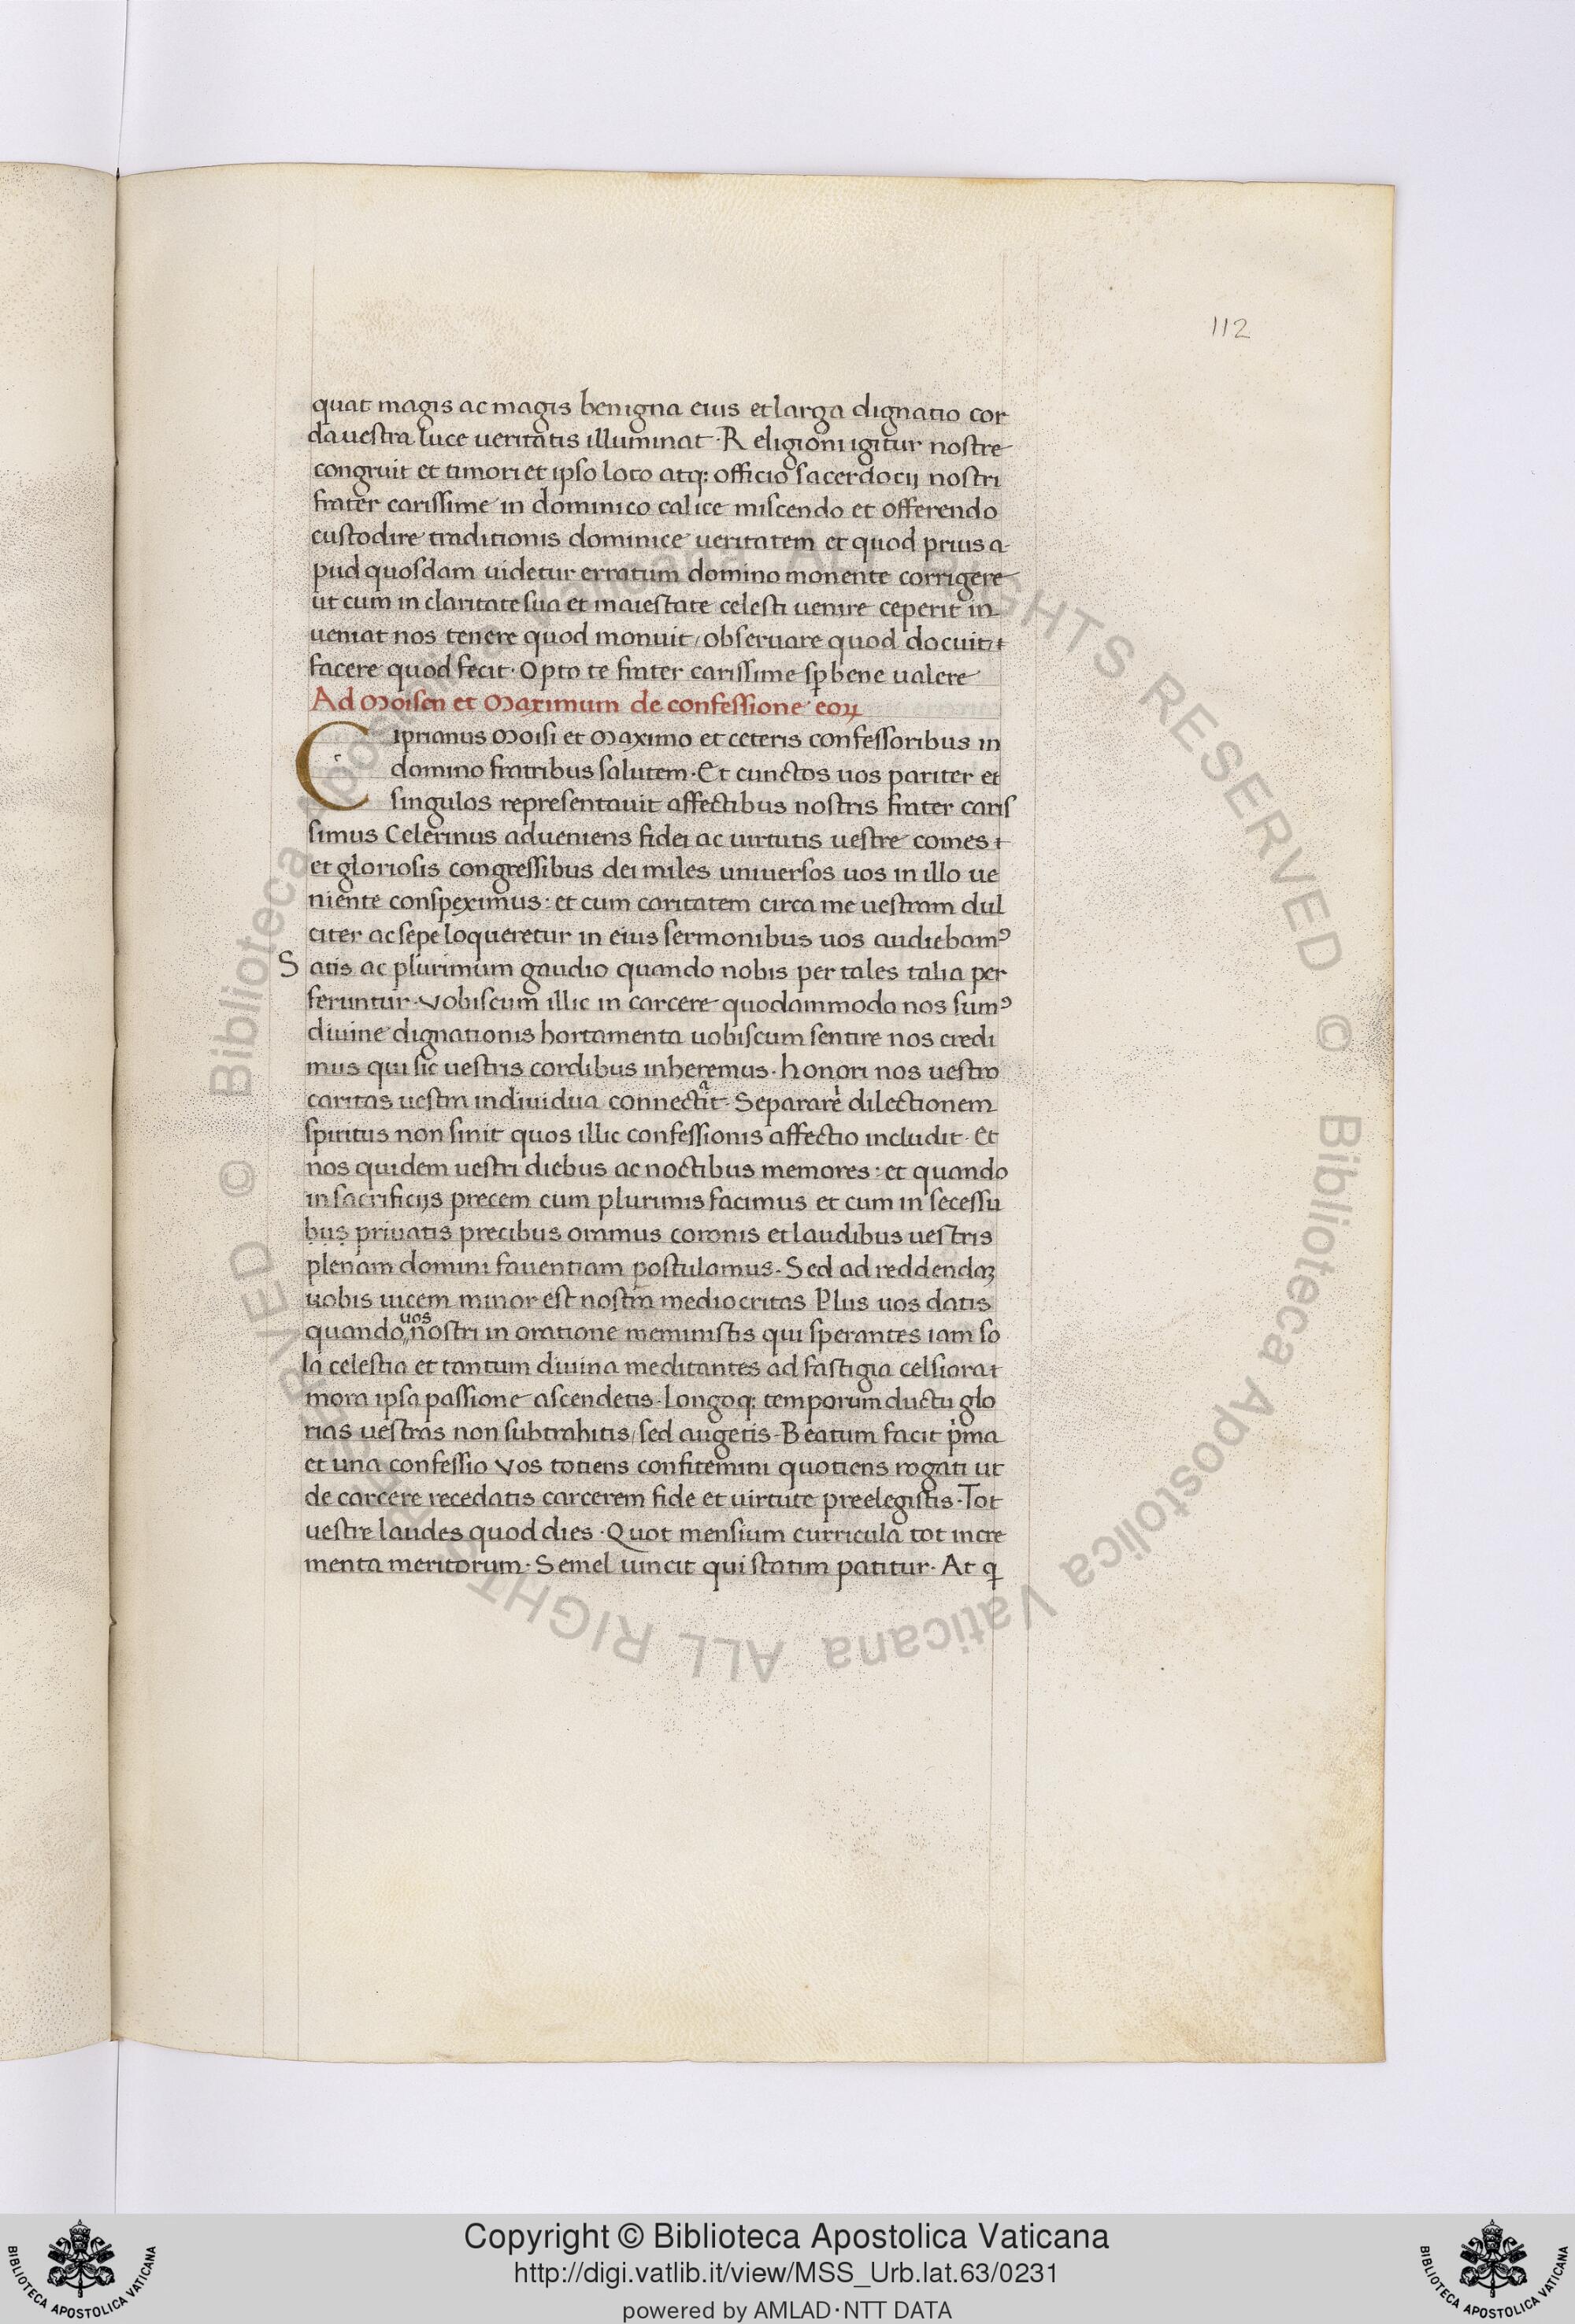 112
quat magis ac magis benigna eius et larga dignatio cor
da uestra luce ueritatis illuminat · Religioni igitur nostre
congruit et timori et ipso loco atq; officio sacerdocij nostri
frater carissime in dominico calice miscendo et offerendo
custodire traditionis dominice ueritatem et quod prius a
pud quosdam uidetur erratum domino monente corrigere
ut cum in claritate sua et maiestate celesti uenire ceperit in
ueniat nos tenere quod monuit / obseruare quod docuit / ⁊
facere quod fecit · Opto te frater carissime sp bene ualere
Ad Moisen et Maximum de confessione eoꝝ
Ciprianus Moisi et Maximo et ceteris confessoribus in
domino fratribus salutem · Et cunctos uos pariter et
singulos representauit affectibus nostris frater caris
simus Celerinus adueniens fidei ac uirtutis uestre comes ⁊
et gloriosis congressibus dei miles uniuersos uos in illo ue
niente conspeximus : et cum caritatem circa me uestram dul
citer ac sepe loqueretur in eius sermonibus uos audiebamꝰ
Satis ac plurimum gaudio quando nobis per tales talia per
feruntur · Vobiscum illic in carcere quodammodo nos sumꝰ
diuine dignationis hortamenta uobiscum sentire nos credi
mus qui sic uestris cordibus inheremus · honori nos uestro
caritas uestra indiuidua connectit · Separare dilectionem
spiritus non sinit quos illic confessionis affectio includit · Et
nos quidem uestri diebus ac noctibus memores : et quando
in sacrificijs precem cum plurimis facimus et cum in secessu
bus priuatis precibus oramus coronis et laudibus uestris
plenam domini fauentiam postulamus · Sed ad reddendaꝫ
uobis uicem minor est nostra mediocritas Plus uos datis
uos
quando nostri in oratione meministis qui sperantes iam so
la celestia et tantum diuina meditantes ad fastigia celsiora ⁊
mora ipsa passione ascendetis · longoq; temporum ductu glo
rias uestras non subtrahitis / sed augetis · Beatum facit pͥma
et una confessio Vos totiens confitemini quotiens rogati ut
de carcere recedatis carcerem fide et uirtute preelegistis · Tot
uestre laudes quod dies · Quot mensium curricula tot incre
menta meritorum · Semel uincit qui statim patitur · At q
© Biblioteca Apostolica Vaticana ALL RIGHTS RESERVED © Biblioteca Apostolica Vaticana ALL RIGHTS RESERVED
Copyright © Biblioteca Apostolica Vaticana
http://digi.vatlib.it/view/MSS_Urb.lat.63/0231
powered by AMLAD·NTT DATA
BIBLIOTECA APOSTOLICA VATICANA
BIBLIOTECA APOSTOLICA VATICANA